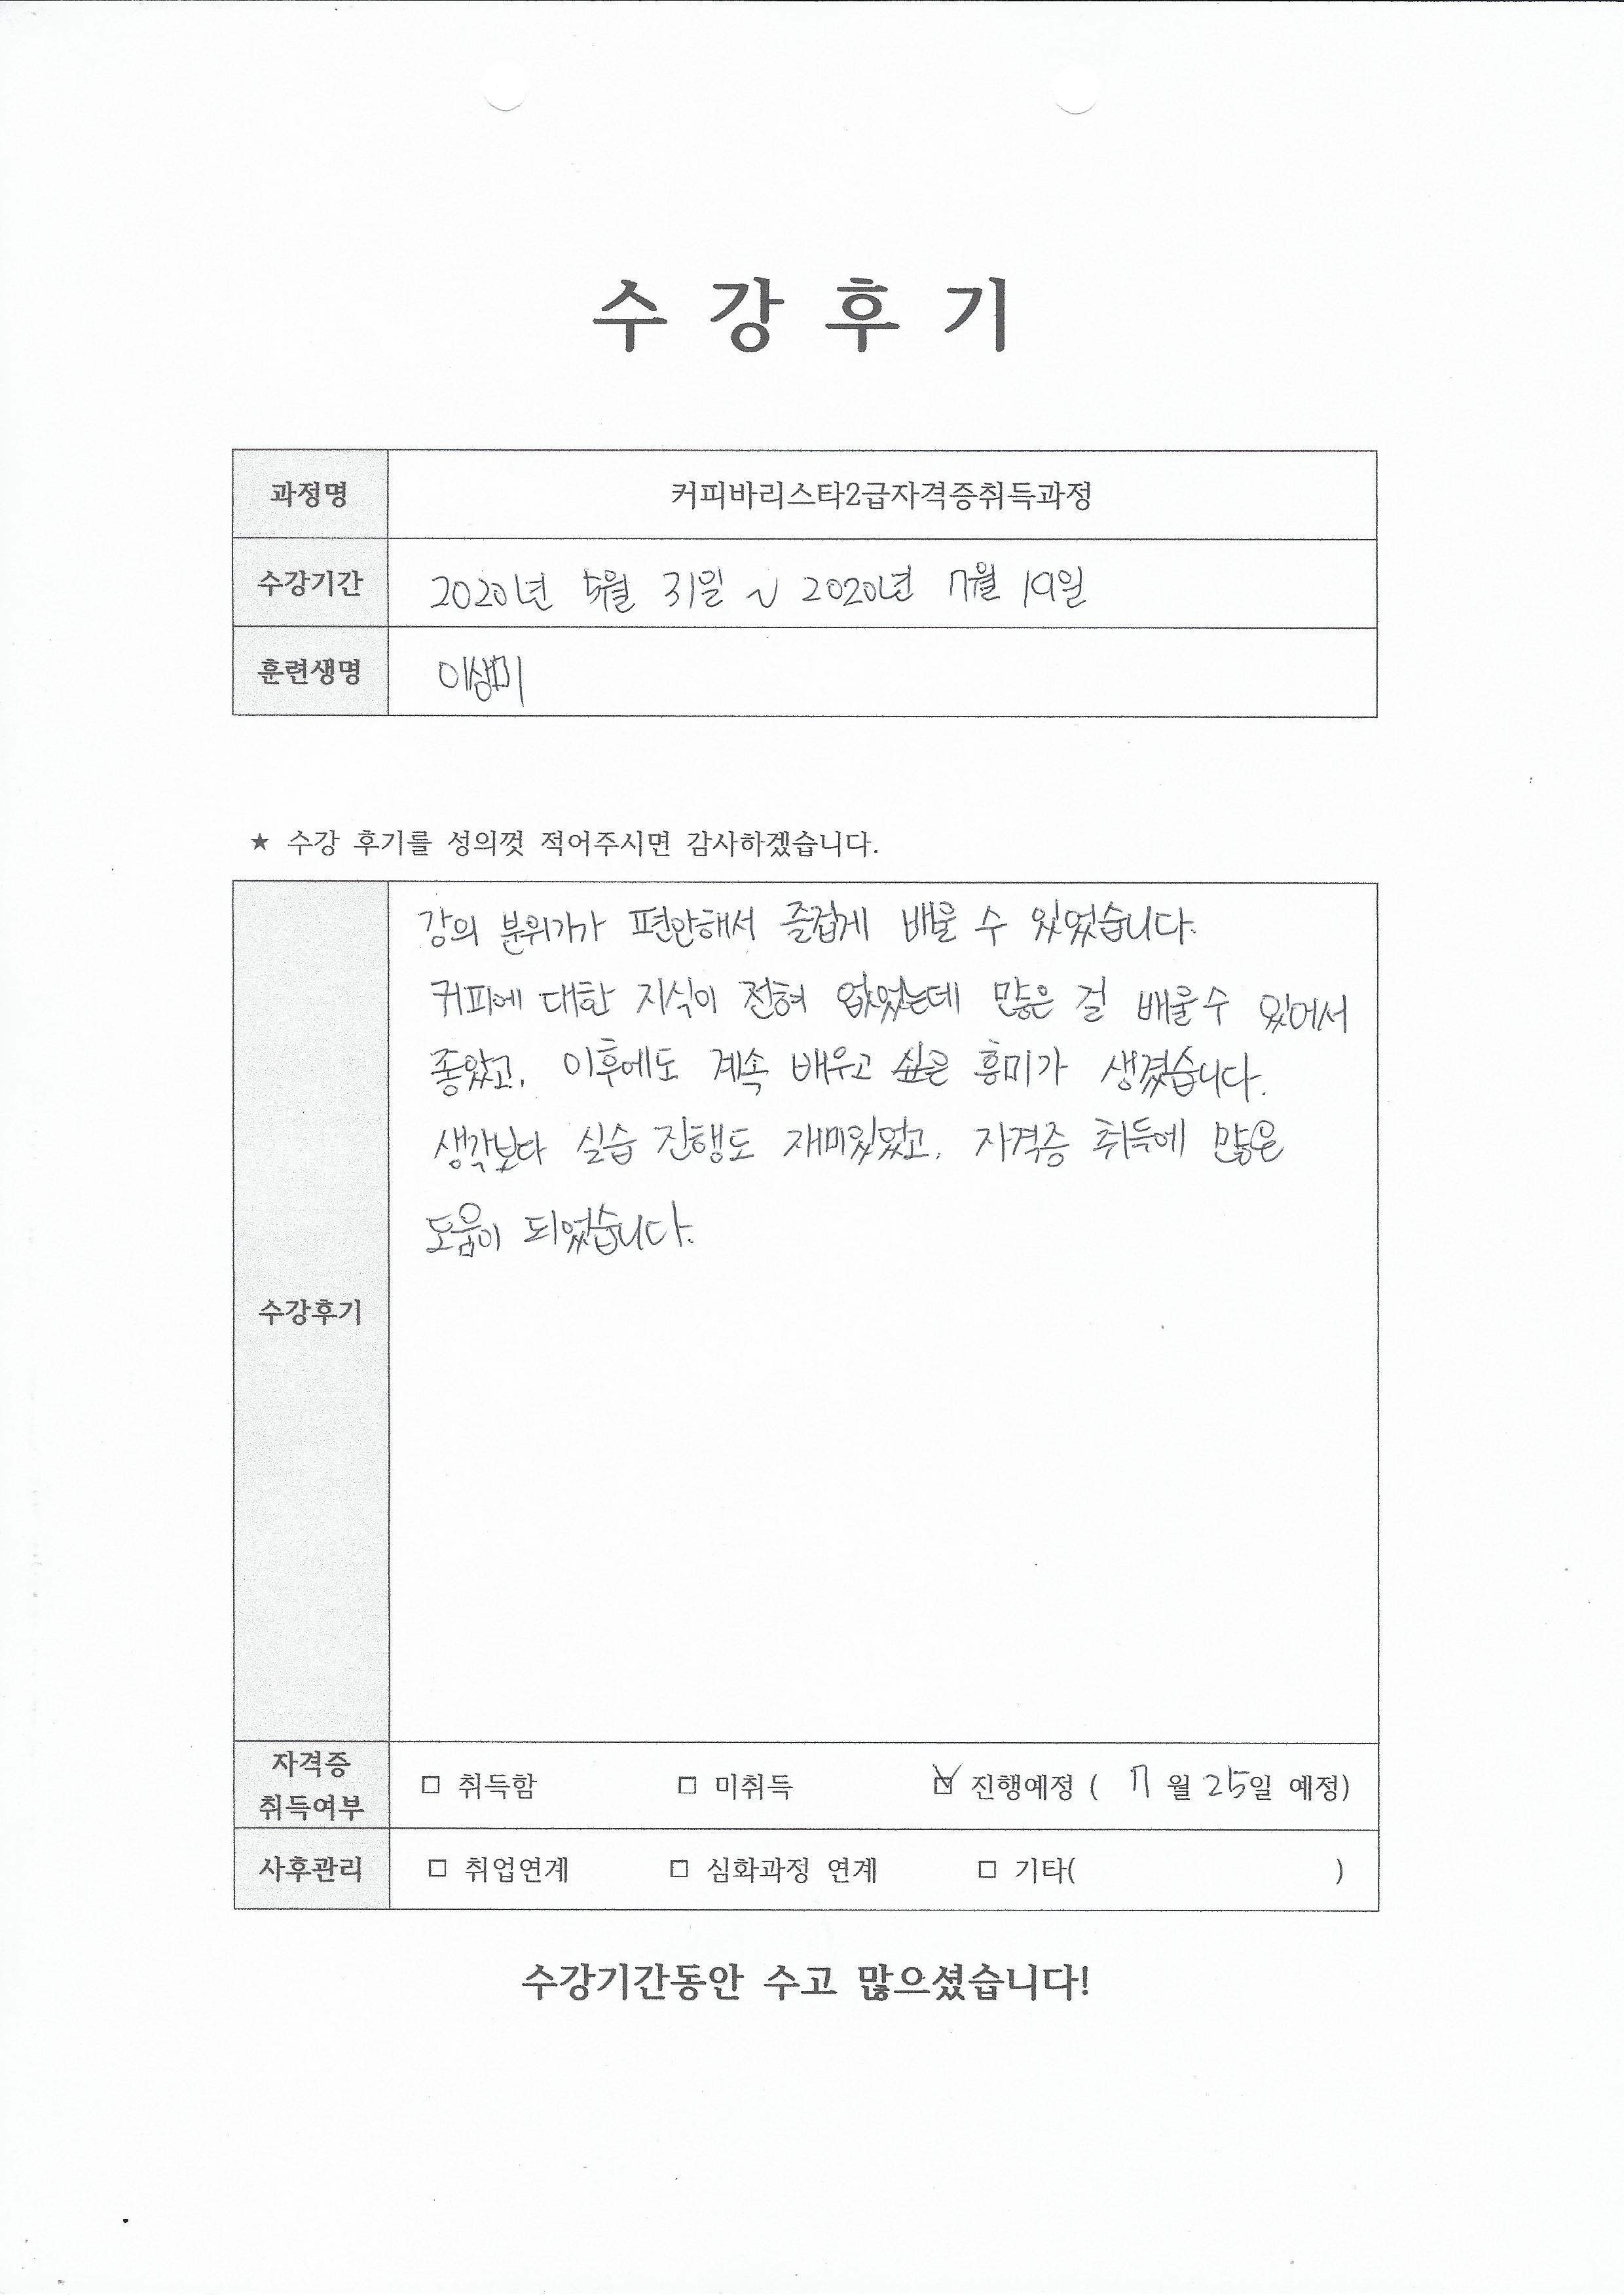 수 강 후 기
과정명 커피바리스타2급자격증취득과정
수강기간 2020년 5월 31일 ~ 2020년 7월 19일
훈련생명 이상미
★ 수강 후기를 성의껏 적어주시면 감사하겠습니다.
강의 분위기가 편안해서 즐겁게 배울 수 있었습니다.
커피에 대한 지식이 전혀 없었는데 많은 걸 배울수 있어서
좋았고, 이후에도 계속 배우고 싶은 흥미가 생겼습니다.
생각보다 실습 진행도 재미있었고, 자격증 취득에 많은
도움이 되었습니다.
수강후기
자격증
취득여부
□ 취득함 □ 미취득 ☑ 진행예정 ( 7 월 25일 예정)
사후관리 □ 취업연계 □ 심화과정 연계 □ 기타( )
수강기간동안 수고 많으셨습니다!